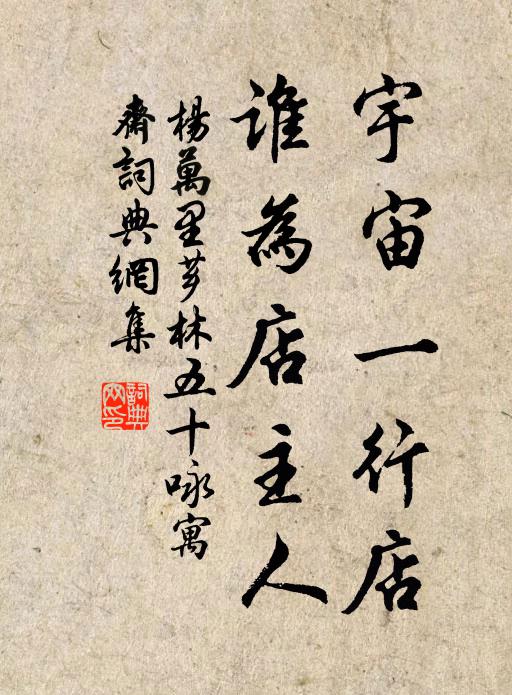 宇宙一行店
誰為店主人
楊萬里芗林五十咏寓
齋詞典網集
詞典網印